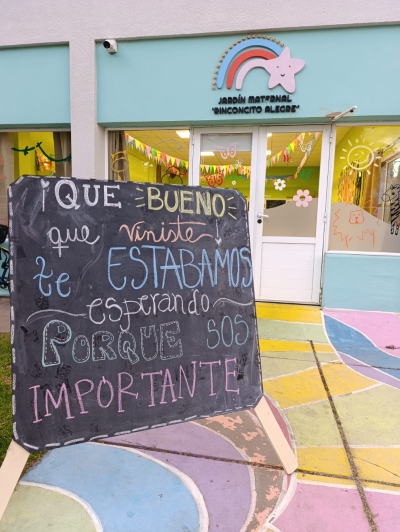 JARDÍN MATERNAL
"RINCONCITO ALEGRE"
¡QUE BUENO
que viniste!
te ESTABAMOS
esperando
PORQUE SOS
IMPORTANTE